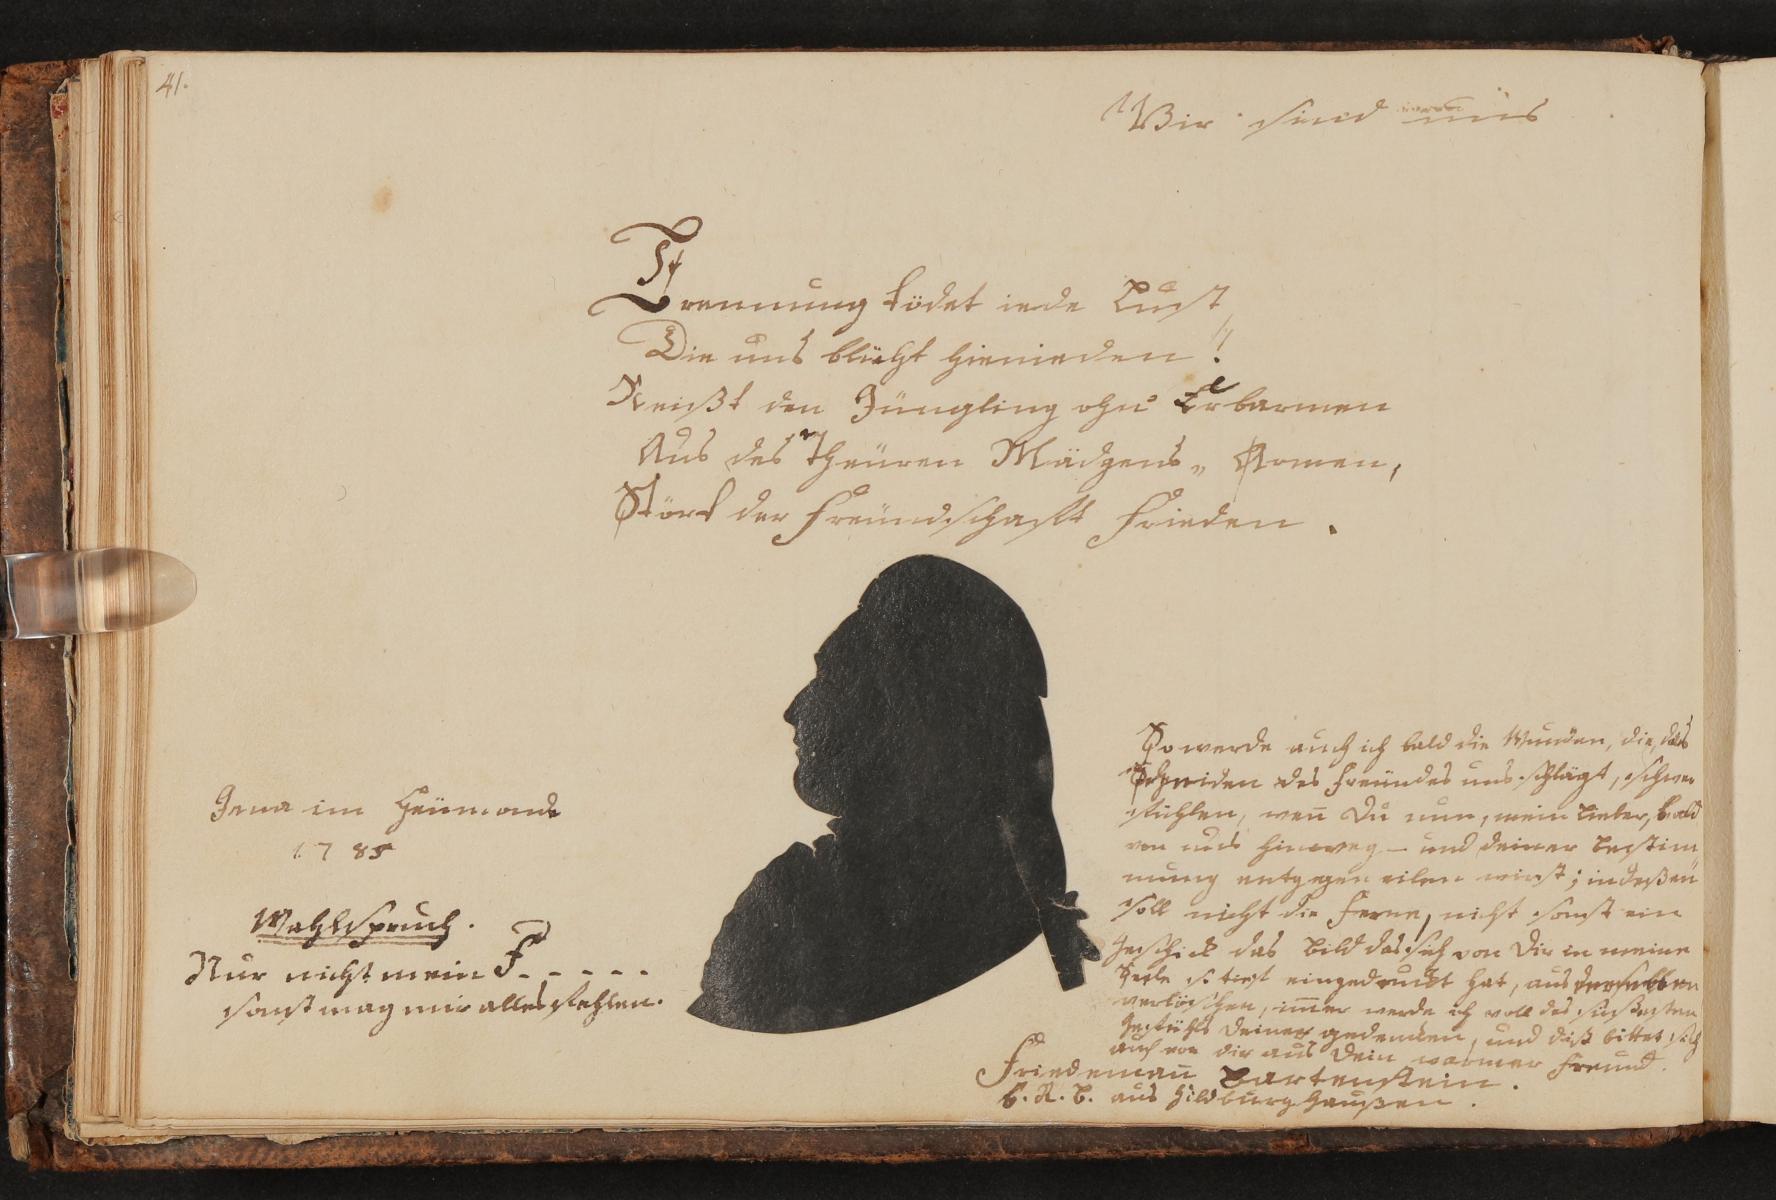 41.
Wir sind uns
Trennung tödet iede Lust
Die uns blüht hienieden!
Reißt den Jüngling ohn' Erbarmen
Aus des theüren Mädgens„ Armen,
Stört der Freündschafft Frieden.
Jena im Heümond
1785
Wahlspruch.
Nur nicht mein F.-----
sonst mag mir alles fehlen.
So werde auch ich bald die Wunden, die, das
Scheiden des Freündes uns schlägt, schwer
fühlen, wen̅ Du nun, mein Lieber, bald
von uns hinweg – und deiner Bestim
mung entgegen eilen wirst; indeßen
soll nicht die Ferne, nicht sonst ein
Geschick das Bild das sich von Dir in meine
Seele so tief eingedruckt hat, aus derselben
verlöschen, im̅er werde ich voll des süßesten
Gefühls Deiner gedencken, und diß bittet sich
auch von dir aus Dein warmer Freund.
Friedeman̅ Bartenstein.
d. R. B. aus Hildburghaußen.